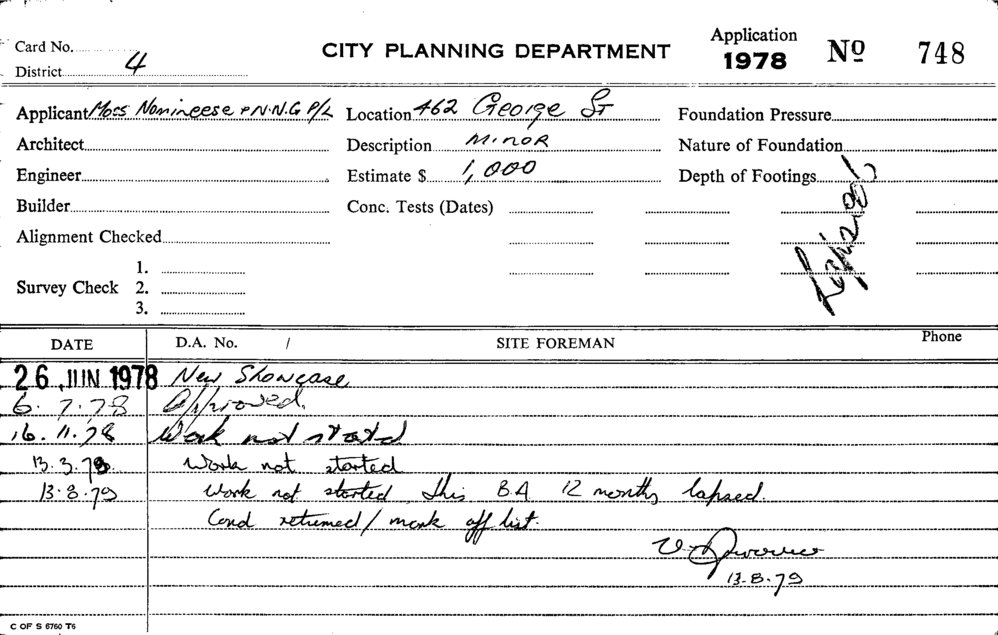 Card No.
CITY PLANNING DEPARTMENT
Application 1978 No 748
District 4
Applicant Moss Nomineese + N.N.G P/L Location 462 George St Foundation Pressure
Architect Description MINOR Nature of Foundation
Engineer Estimate $ 1,000 Depth of Footings
Builder Conc. Tests (Dates)
Alignment Checked
1.
Survey Check 2.
3.
DATE D.A. No. / SITE FOREMAN Phone
26 JUN 1978 New Showcase
6.7.78 Approved.
16.11.78 Work not started
13.3.79 Work not started
13.8.79 Work not started this B.A 12 months lapsed.
Card returned / mark off list.
13.8.79
C OF S 6760 T6